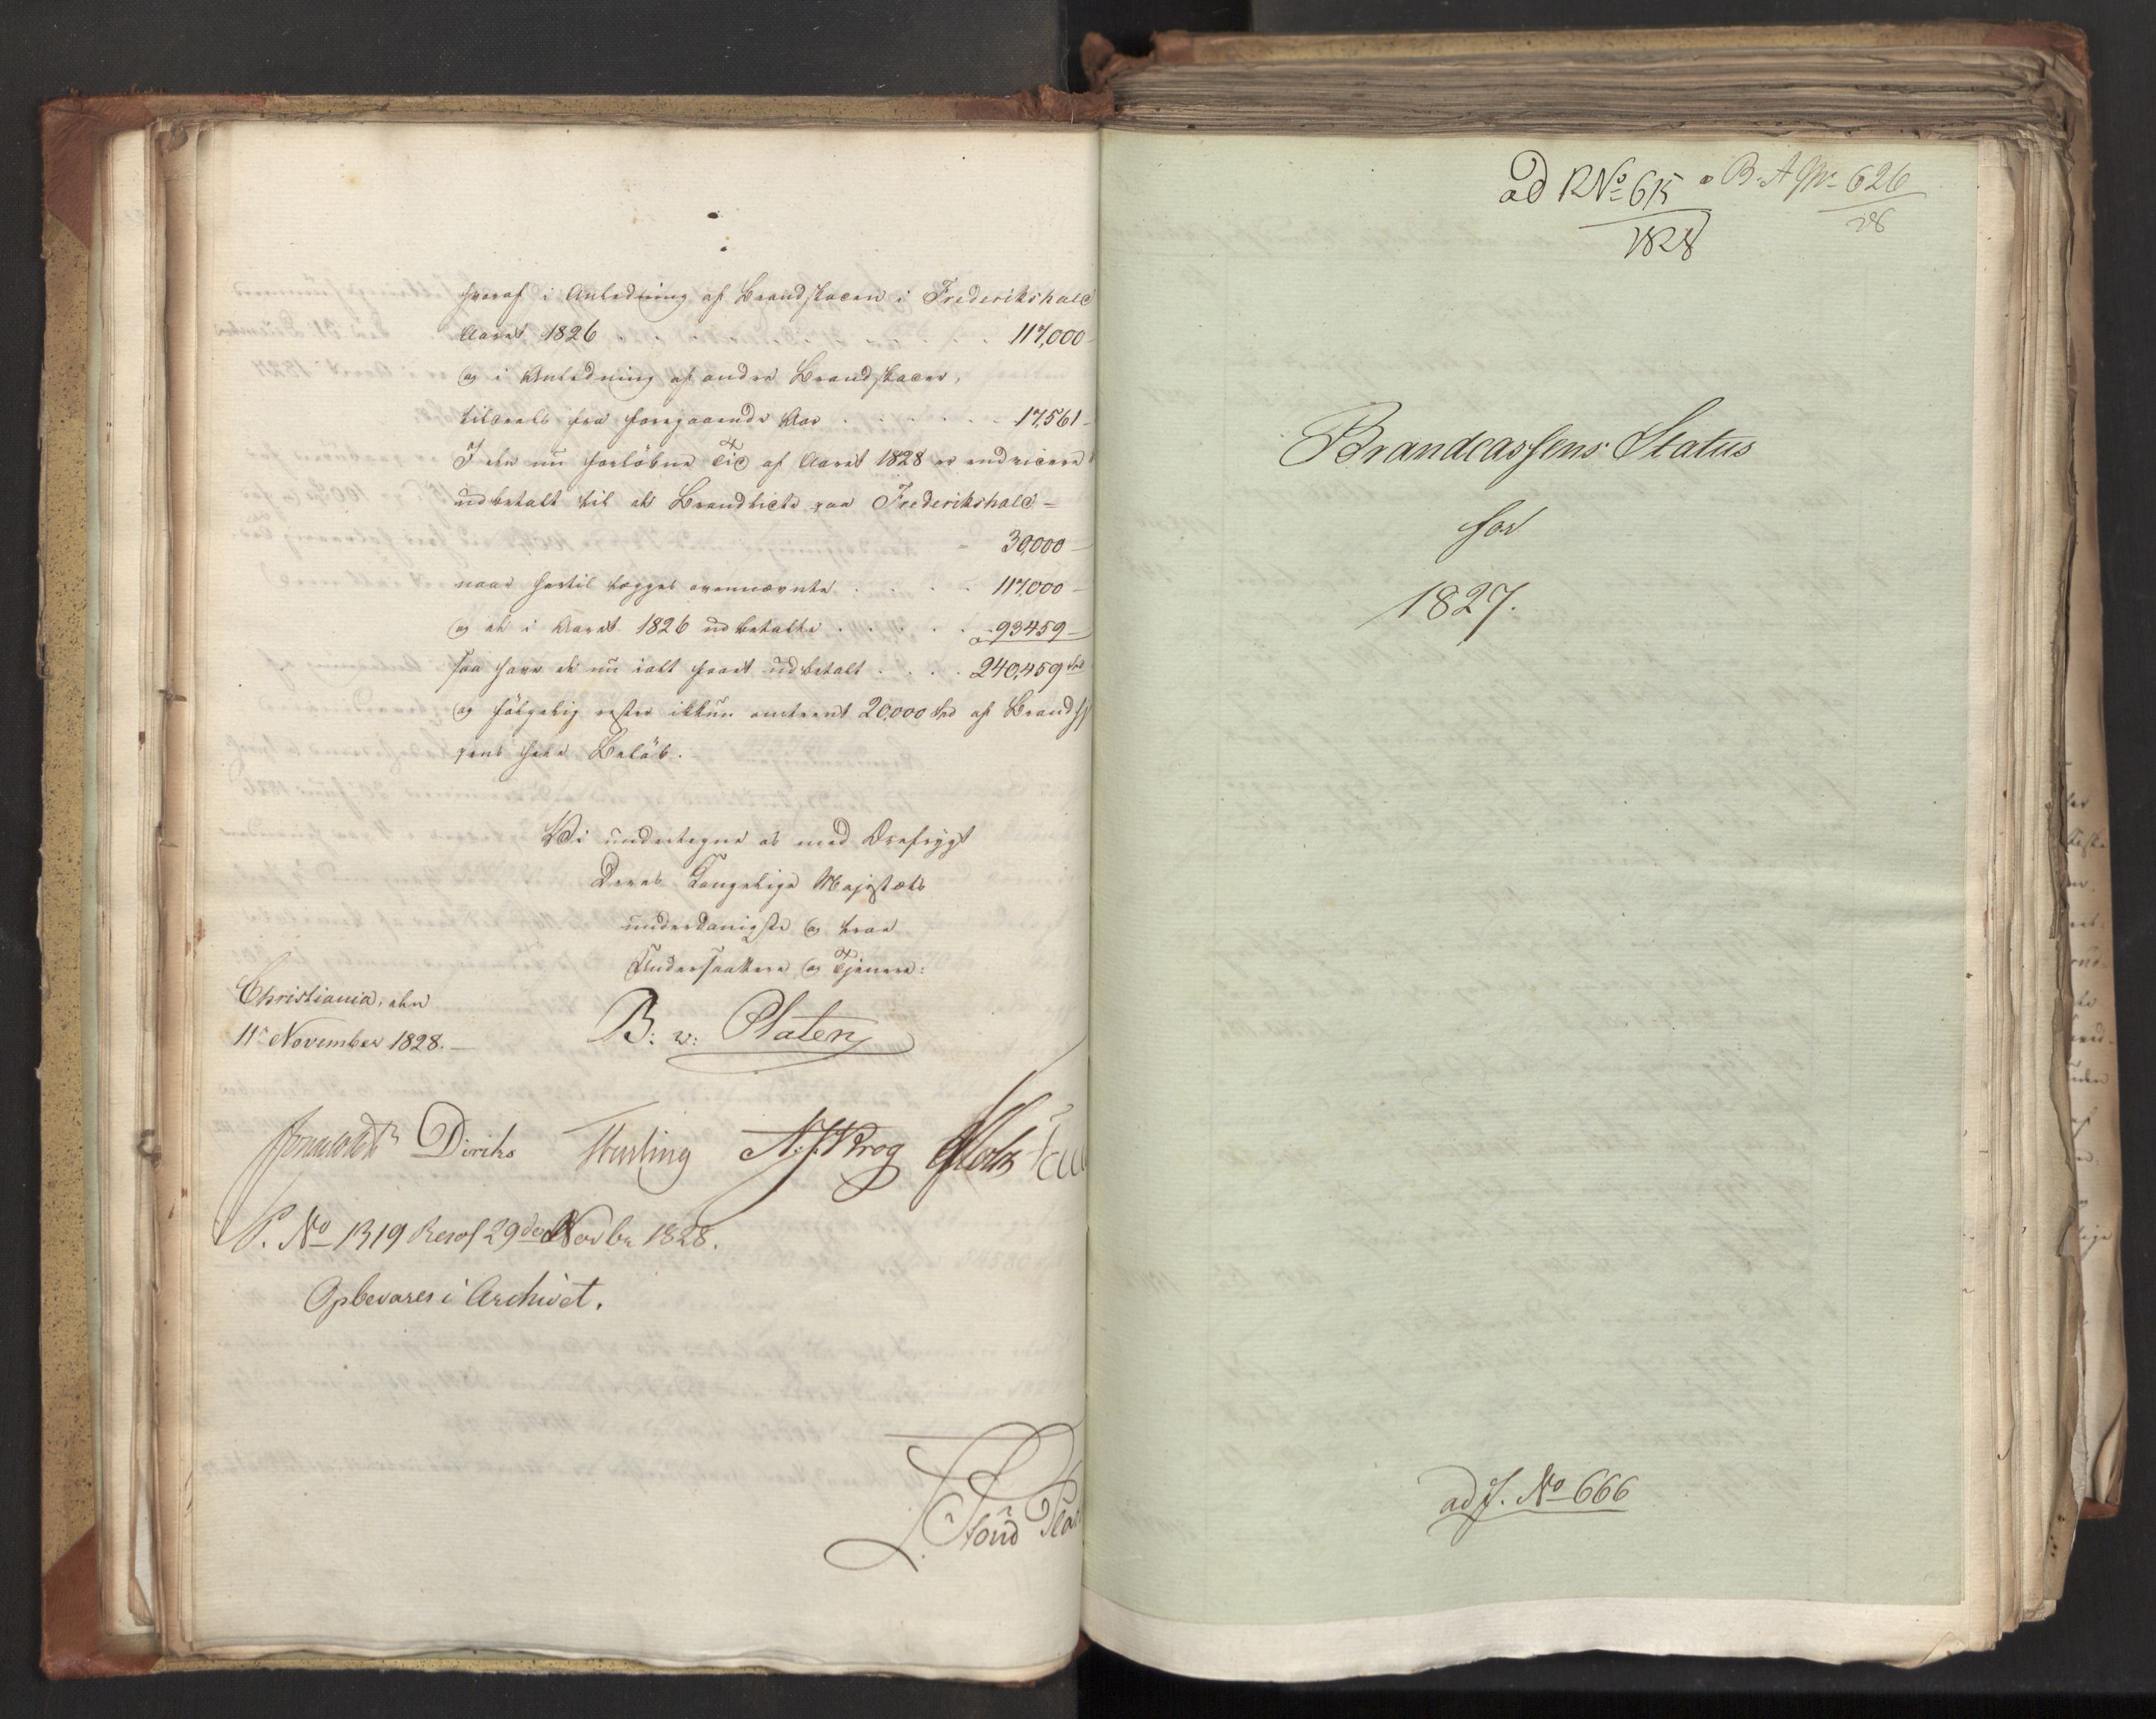 hvoraf i Anledning af Brandskaden i Frederikshald
Aaret 1826 . . . . . . . . 117,000 -
og i Anledning af andre Brandskader,
tildeels fra foregaaende Aar . . . . . . 17,561 -
I den nu forløbne Tid af Aaret 1828 er endvidere
udbetalt til de Brandlidte paa Frederikshald =
30,000 -
naar hertil lægges ovennævnte . . . . 117,000 -
og de i Aaret 1826 udbetalte . . . . . 93459 -
saa have de nu ialt faaet udbetalt . . . . 240,459 Spd
og følgelig rester ikkun omtrent 20,000 Spd af
hele Beløb.
Vi undertegne os med Ærefrygt
Deres Kongelige Majestæts
underdanigste og troe
Undersaattere og Tjenere:
Christiania, den
11te November 1828. -
B: v: Platen
Diriks
N. J. Krog
P. No 1319 Resol 29de Novbr 1828.
Opbevares i Archivet.
ad RNo 615 B. A No 626
1828 28
Brandcassens Status
for
1827.
ad J. No 666